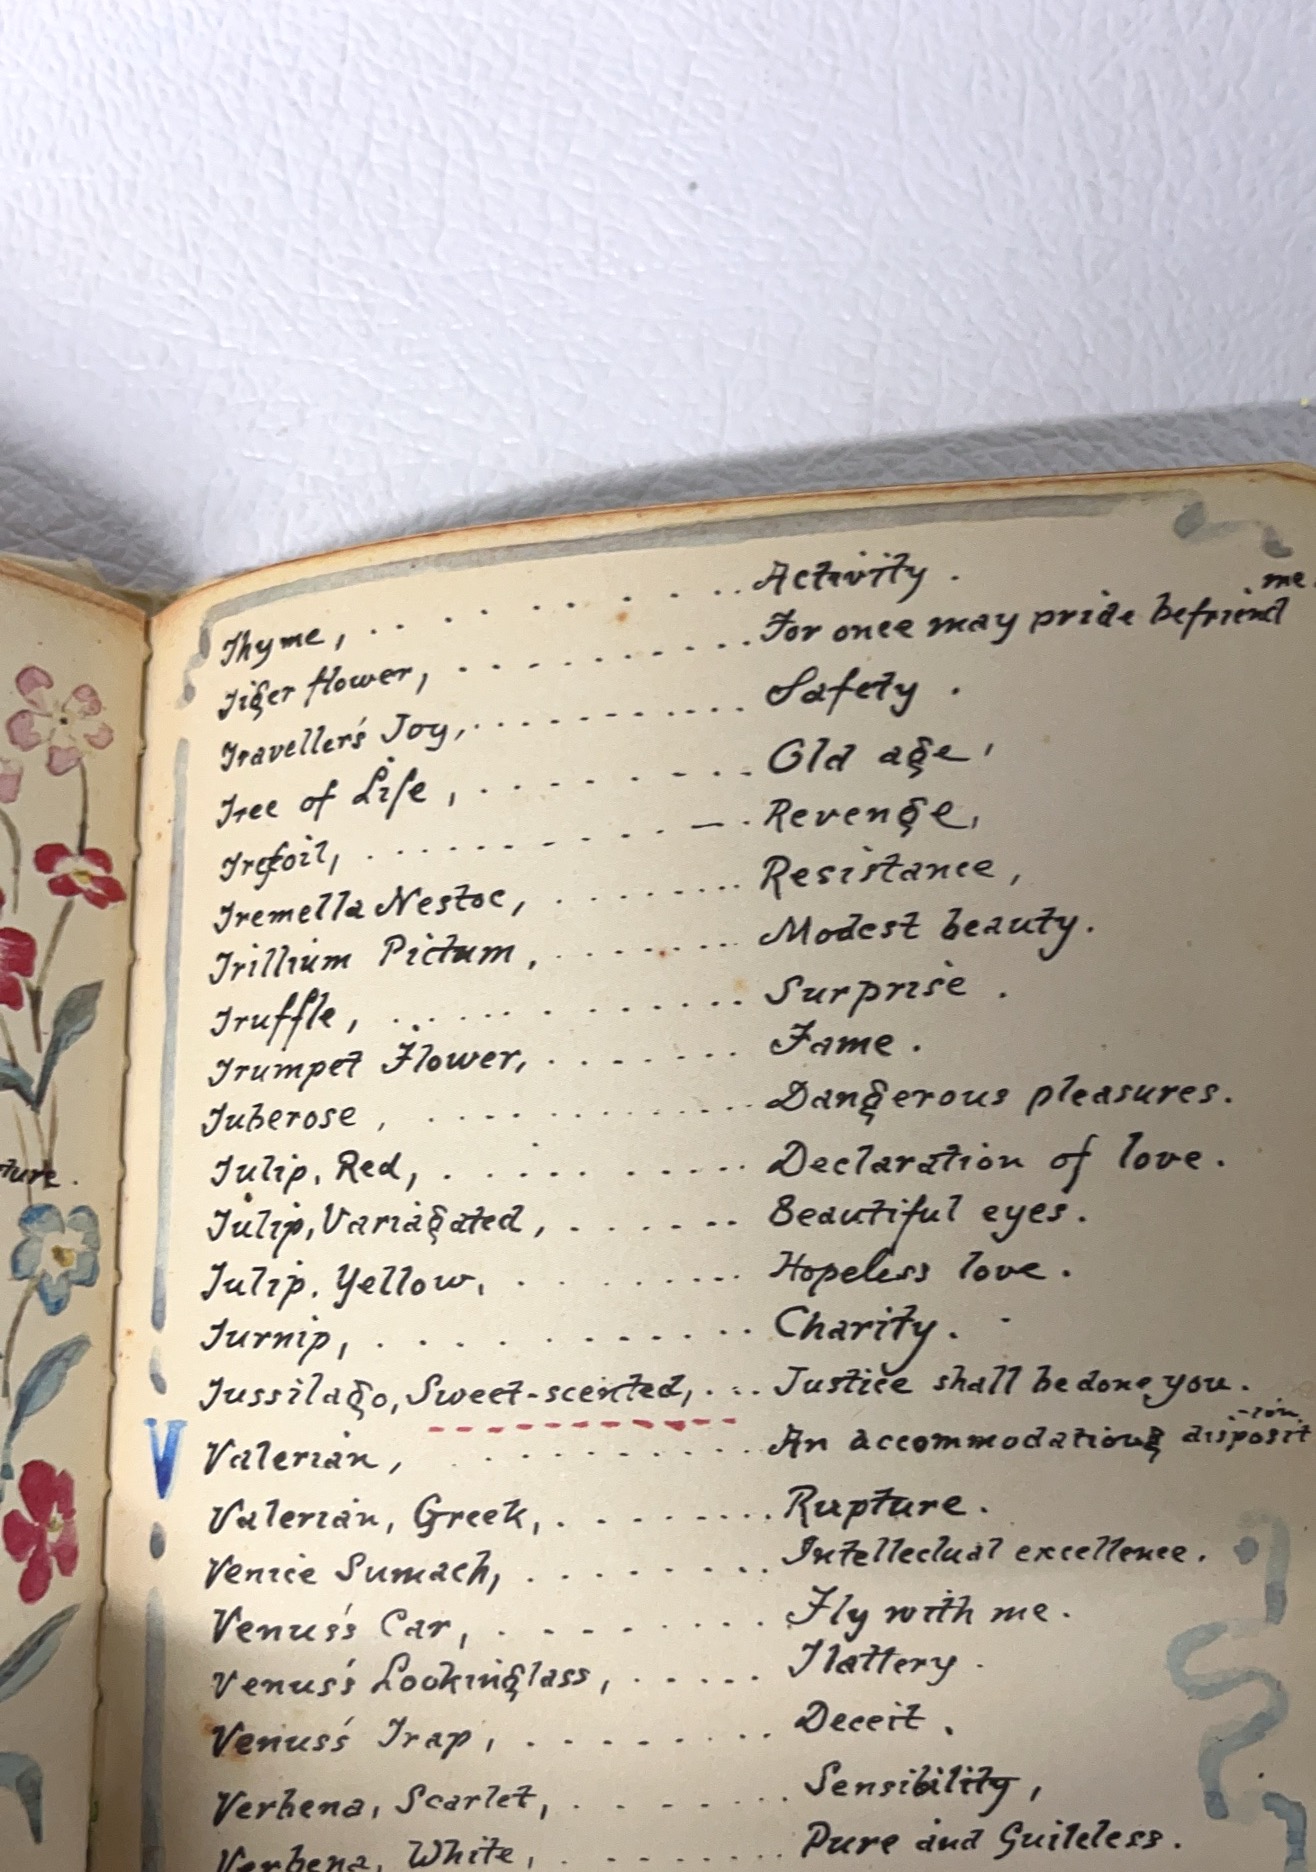 ture.
Thyme, . . . . . . . . . Activity.
Tiger flower, . . . . . . . . . . For once may pride befriend me.
Traveller's Joy, . . . . . . . . . . . Safety.
Tree of Life, . . . . . . . . Old age,
Trefoil, . . . . . . . . . — . Revenge,
Tremella Nestoc, . . . . . . . . Resistance,
Trillium Pictum, . . . . . . . . Modest beauty.
Truffle, . . . . . . . . . . . . Surprise.
Trumpet Flower, . . . . . . . Fame.
Tuberose, . . . . . . . . . . Dangerous pleasures.
Tulip, Red, . . . . . . . . . . Declaration of love.
Tulip, Variagated, . . . . . . . Beautiful eyes.
Tulip, Yellow, . . . . . . . . Hopeless love.
Turnip, . . . . . . . . . . . Charity.
Tussilago, Sweet-scented, . . . . Justice shall be done you.
V
Valerian, . . . . . . . . . . An accommodating disposit-ion.
Valerian, Greek, . . . . . . . . Rupture.
Venice Sumach, . . . . . . . . Intellectual excellence.
Venus's Car, . . . . . . . . Fly with me.
Venus's Lookinglass, . . . . . Flattery.
Venus's Trap, . . . . . . . . Deceit.
Verbena, Scarlet, . . . . . . . Sensibility,
Verbena, White, . . . . . . . . Pure and Guileless.